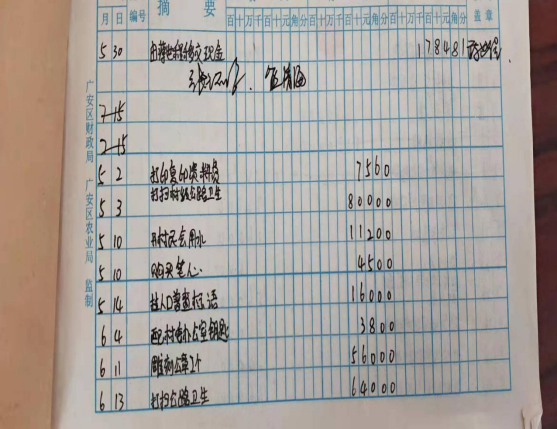 月 日 编号 摘 要 百十万千百十元角分 百十万千百十元角分 百十万千百十元角分 盖 章
5 30 移交现金 178481
7 15
2 15
5 2 打印复印资料费 7560
5 3 打扫村级公路卫生 80000
5 10 开村民会用水 11200
5 10 购买笔心 4500
5 14 挂人口普查标语 16000
6 4 配村电办公室钥匙 3800
6 11 雕刻公章2个 56000
6 13 打扫公路卫生 64000
广安区财政局 广安区农业局 监制